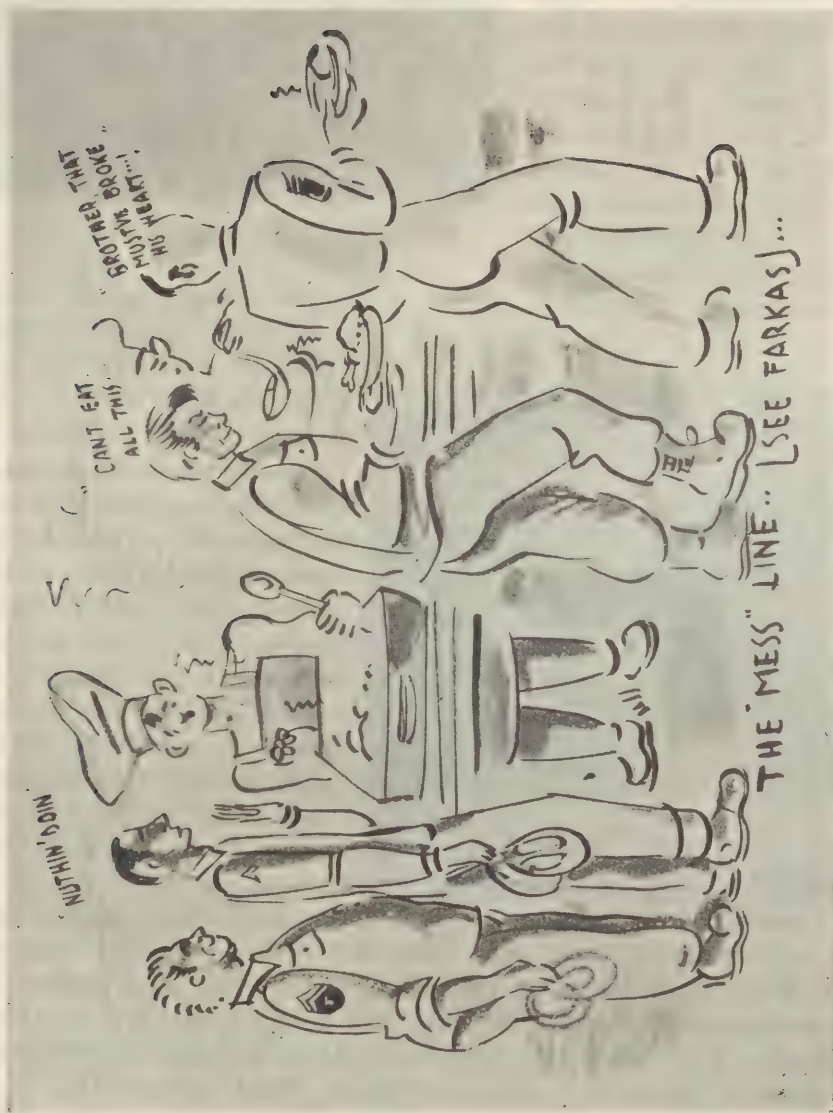 "NUTHIN' DOIN
"CANT EAT
ALL THIS
"BROTHER, THAT
MUST'VE BROKE"
HIS HEART....!
THE "MESS" LINE.. [SEE FARKAS]...